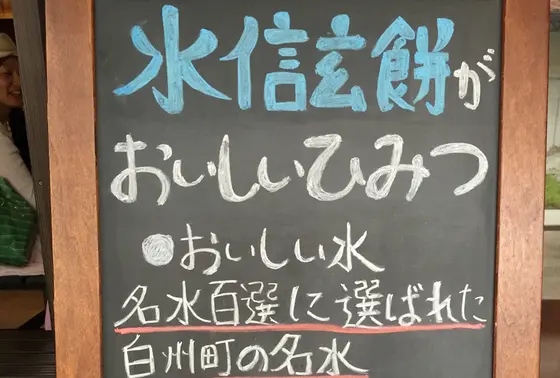 水信玄餅が
おいしいひみつ
●おいしい水
名水百選に選ばれた
白州町の名水